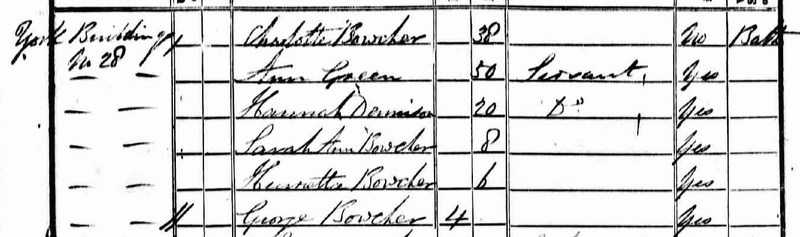 York Buildings Charlotte Bowcher 38 No Bath
No 28 Ann Green 50 Servant Yes
— — Hannah Dennison 20 Do Yes
— — Sarah Ann Bowcher 8 Yes
— — Henrietta Bowcher 6 Yes
— — George Bowcher 4 Yes